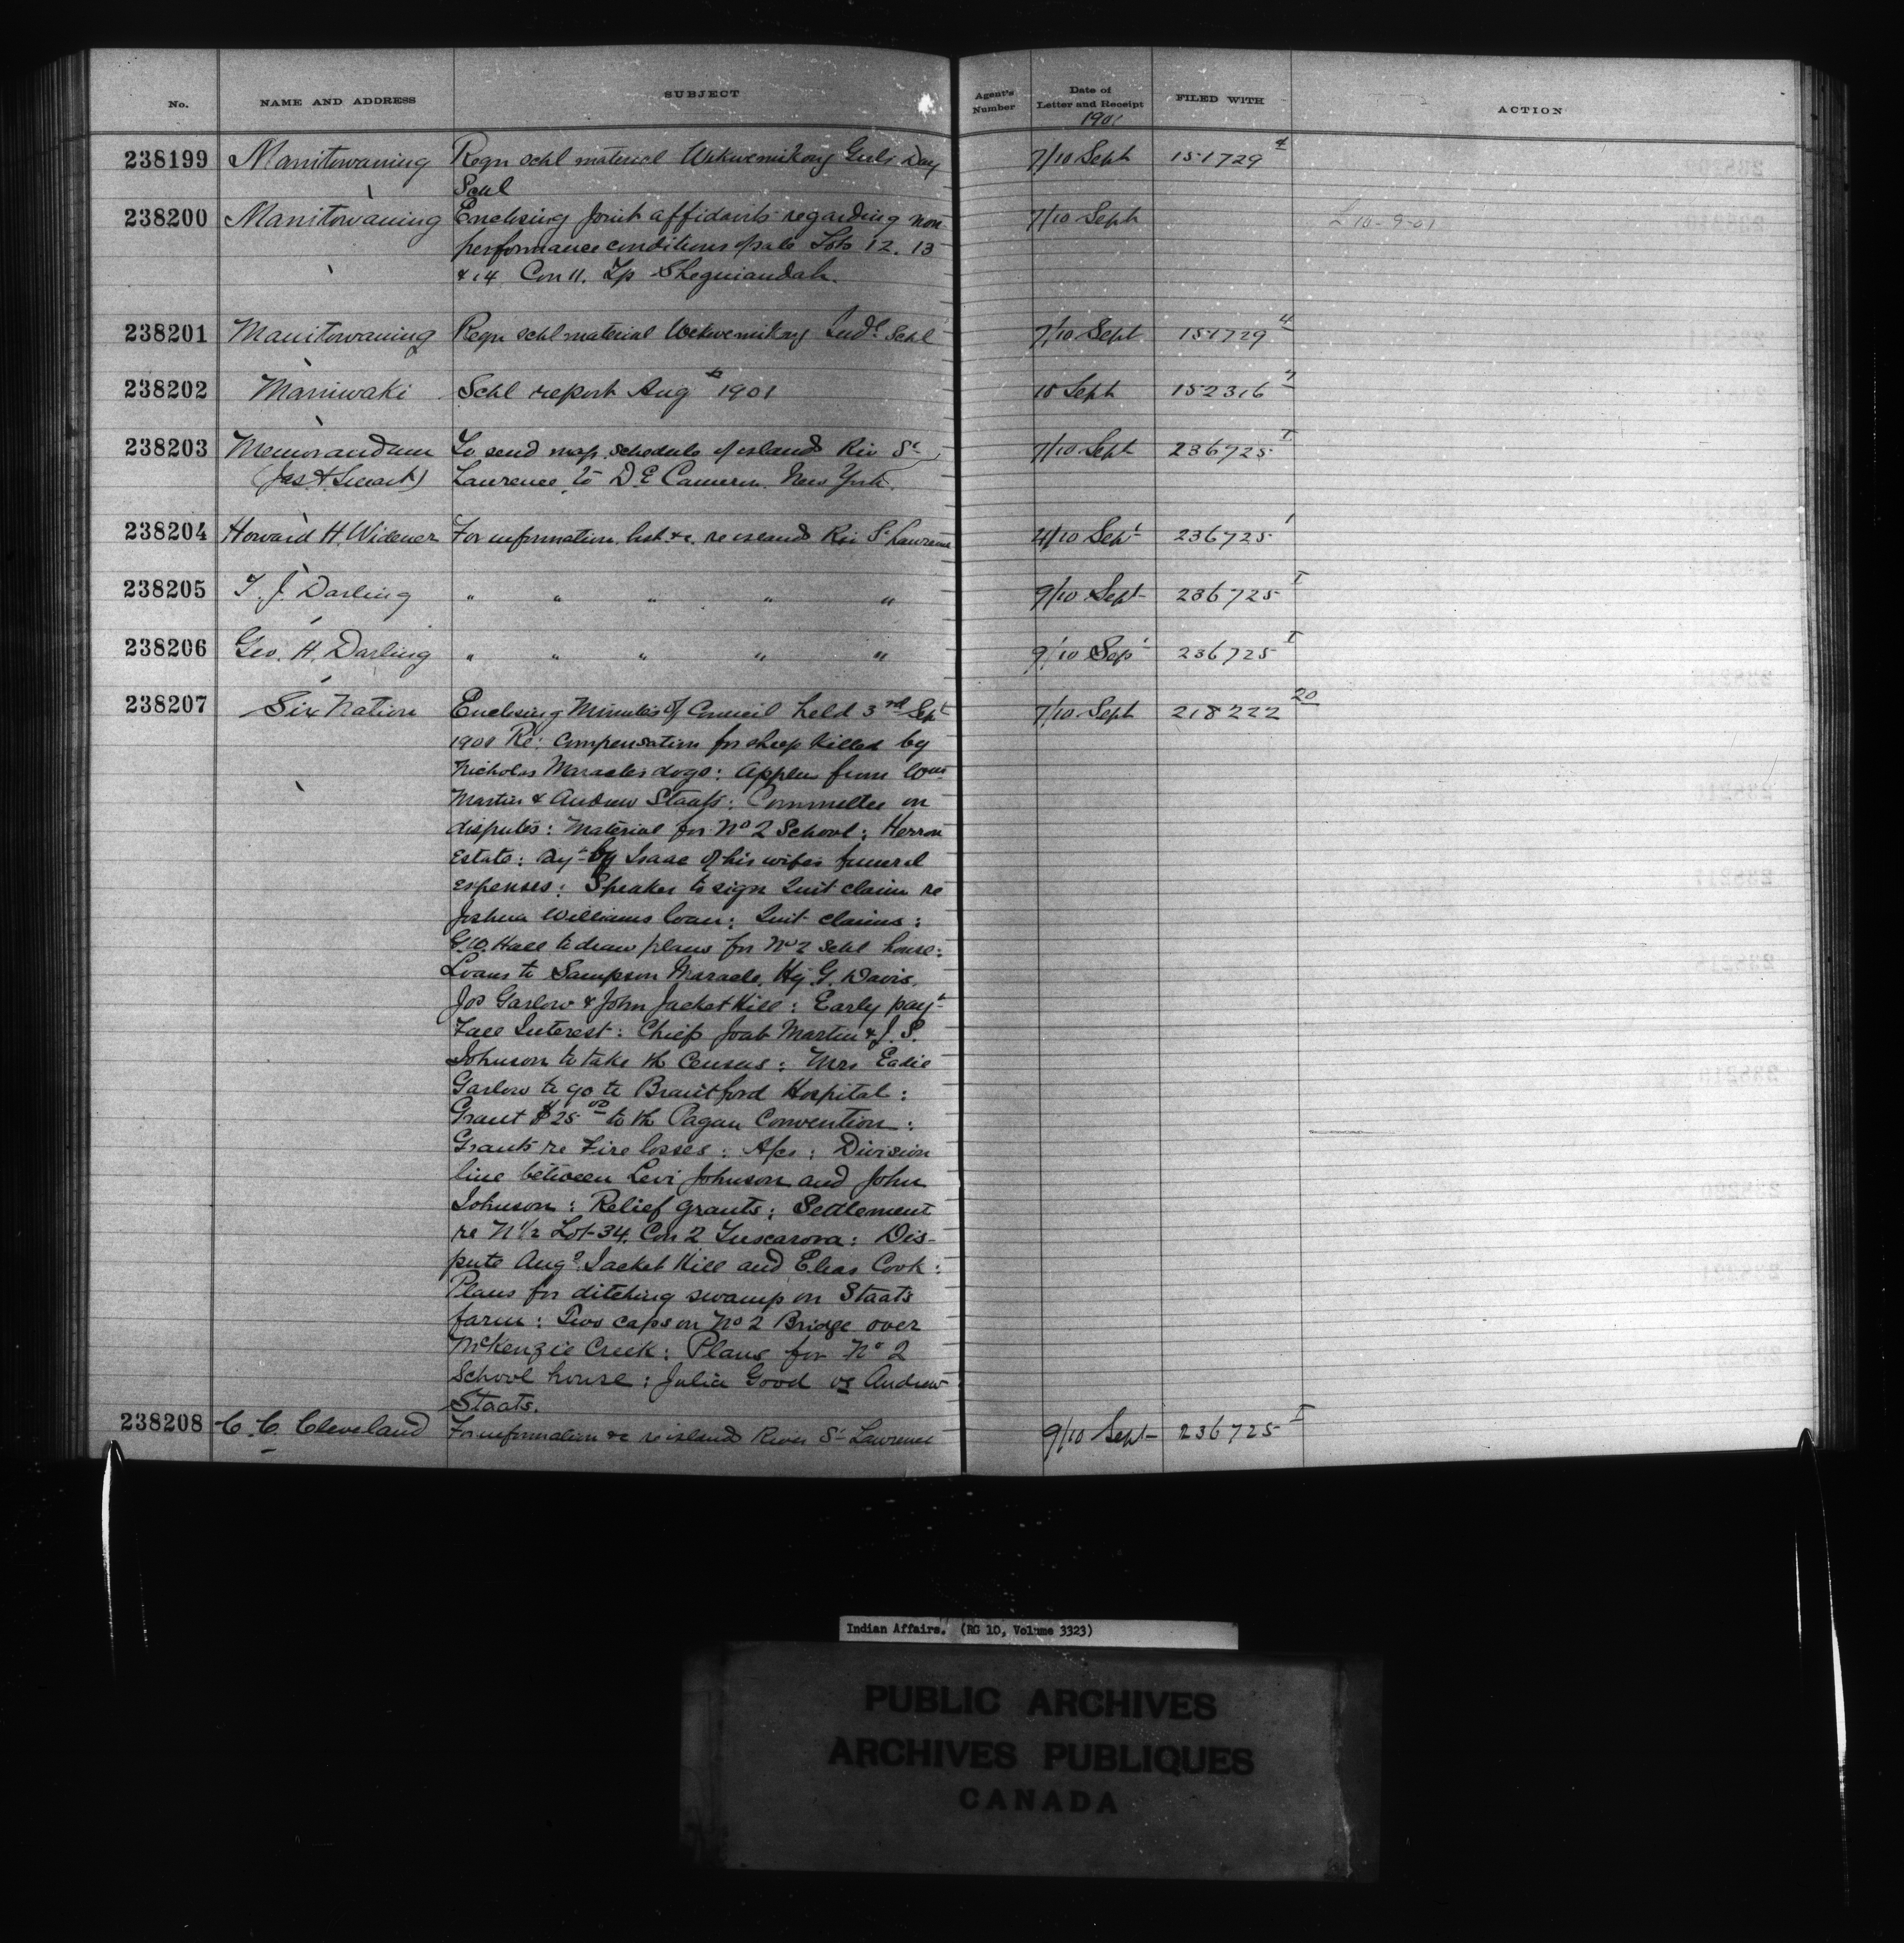 No. NAME AND ADDRESS SUBJECT Agent's Number Date of Letter and Receipt FILED WITH ACTION
1901
238199 Manitowaning Reqn schl material Wikwemikong Girls Day 7/10 Sept 151729 4
Schl
238200 Manitowaning Enclosing Joint affidavits regarding non 7/10 Sept L 10-9-01
performance conditions of sale Lots 12. 13
& 14 Con 11. Tp Sheguiandah.
238201 Manitowaning Reqn schl material Wekwemikong Indl Schl 7/10 Sept 151729 4
238202 Maniwaki Schl report Aug 1901 10 Sept 152316 7
238203 Memorandum To send map, schedule of islands Riv St 7/10 Sept 236725 I
(Jas A Smart) Lawrence, to D. E Cameron New York.
238204 Howard H. Widener For information, list &c. re islands Riv St Lawrence 4/10 Sept 236725 1
238205 T. J. Darling " " " " " 9/10 Sept 236725 I
238206 Geo. H. Darling " " " " " 9/10 Sept 236725 I
238207 Six Nation Enclosing Minutes of Council held 3rd Sept 7/10 Sept 218222 20
1901 Re: Compensation for sheep killed by
Nicholas Maracles dogs: Applen from Wm
Martin & Andrew Staats: Committee on
disputes: Material for No 2 School: Herron
Estate: by Isaac of his wifes funeral
expenses: Speaker to sign Quit claim re
Joshua Williams loan: Quit claims:
G. W. Hall to draw plans for No 2 schl house:
Loans to Sampson Maracle, Hy. G. Davis,
Jos Garlow & John Jacket Hill: Early payt
Fall Interest: Chief Joab Martin & J. S.
Johnson to take the Census: Mrs Eadie
Garlow to go to Brantford Hospital:
Grant $25 00 to the Pagan Convention:
Grants re Fire losses: A/cs: Division
line between Levi Johnson and John
Johnson: Relief grants: Settlement
re N 1/2 Lot 34. Con 2 Tuscarora: Dis-
pute Aug. Jacket Hill and Elias Cook:
Plans for ditching swamp on Staats
farm: Two caps on No 2 Bridge over
McKenzie Creek: Plans for No 2
School house: Julia Good vs Andrew
Staats.
238208 C. C. Cleveland For information &c re islands River St Lawrence 9/10 Sept 236725 I
Indian Affairs. (RG 10, Volume 3323)
PUBLIC ARCHIVES
ARCHIVES PUBLIQUES
CANADA